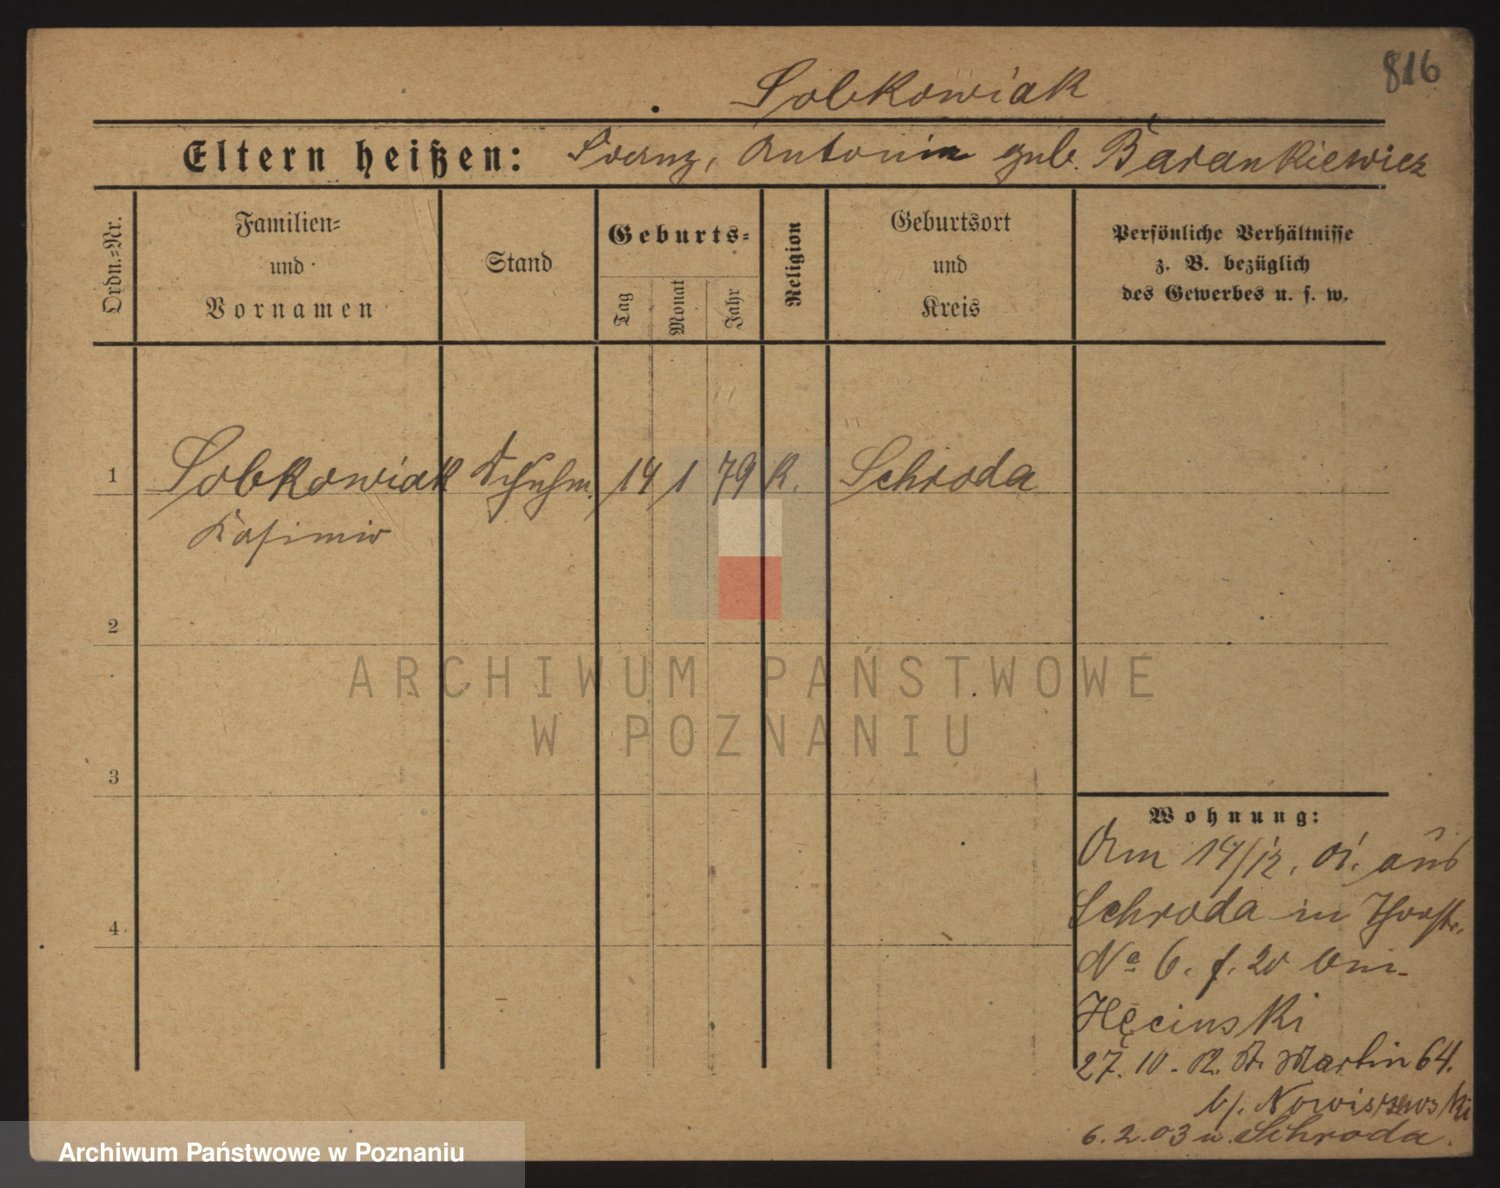 816
Sobkowiak
Eltern heißen: Franz, Antonin geb. Barankiewicz
Ordn.-Nr.
Familien-
und
Vornamen
Stand
Geburts-
Tag
Monat
Jahr
Religion
Geburtsort
und
Kreis
Persönliche Verhältnisse
z. B. bezüglich
des Gewerbes u. s. w.
1 Sobkowiak Schuhm. 14 1 79 K. Schroda
Kasimir
2
3
4
ARCHIWUM PAŃSTWOWE
W POZNANIU
Wohnung:
Am 14/12. 01. aus
Schroda in Thorstr.
No 6. f. 20 bei
Hęcinski
27. 10. St. Martin 64.
b/. Nowiszewski
6. 2. 03 n. Schroda.
Archiwum Państwowe w Poznaniu